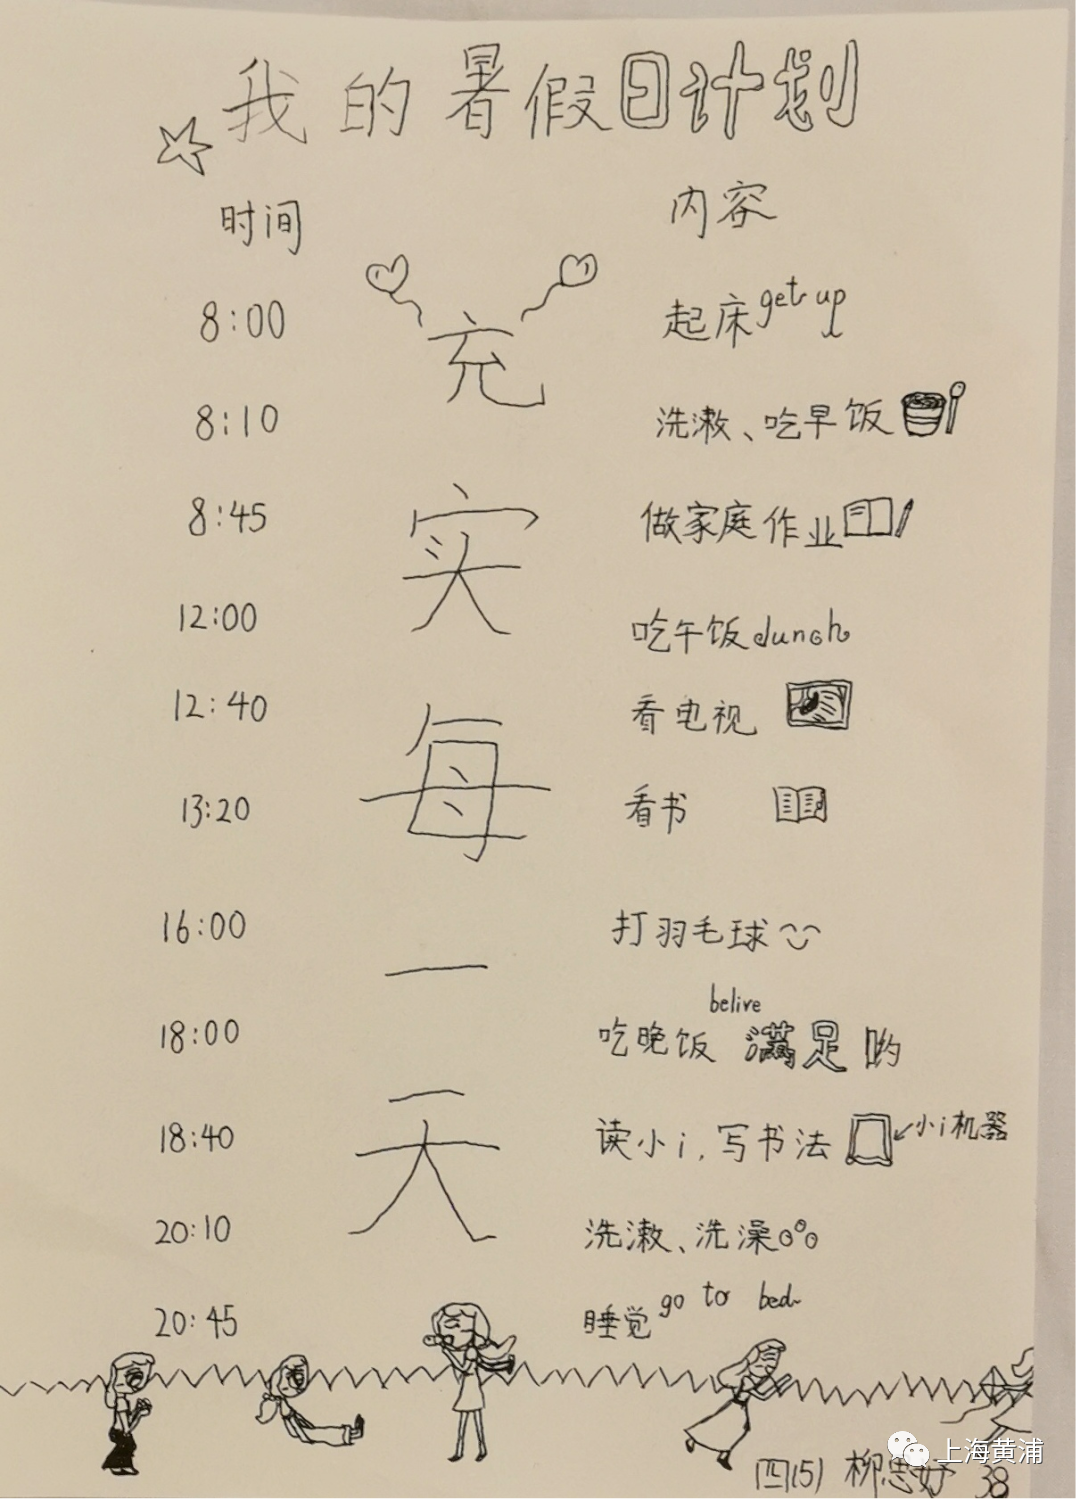 我的暑假日计划
时间 内容
8:00 起床 get up
8:10 洗漱、吃早饭
8:45 做家庭作业
12:00 吃午饭 lunch
12:40 看电视
13:20 看书
16:00 打羽毛球
18:00 吃晚饭 belive 满足哟
18:40 读小i,写书法 小i机器
20:10 洗漱、洗澡
20:45 睡觉 go to bed
充实每一天
四(5) 柳思妤 38
上海黄浦